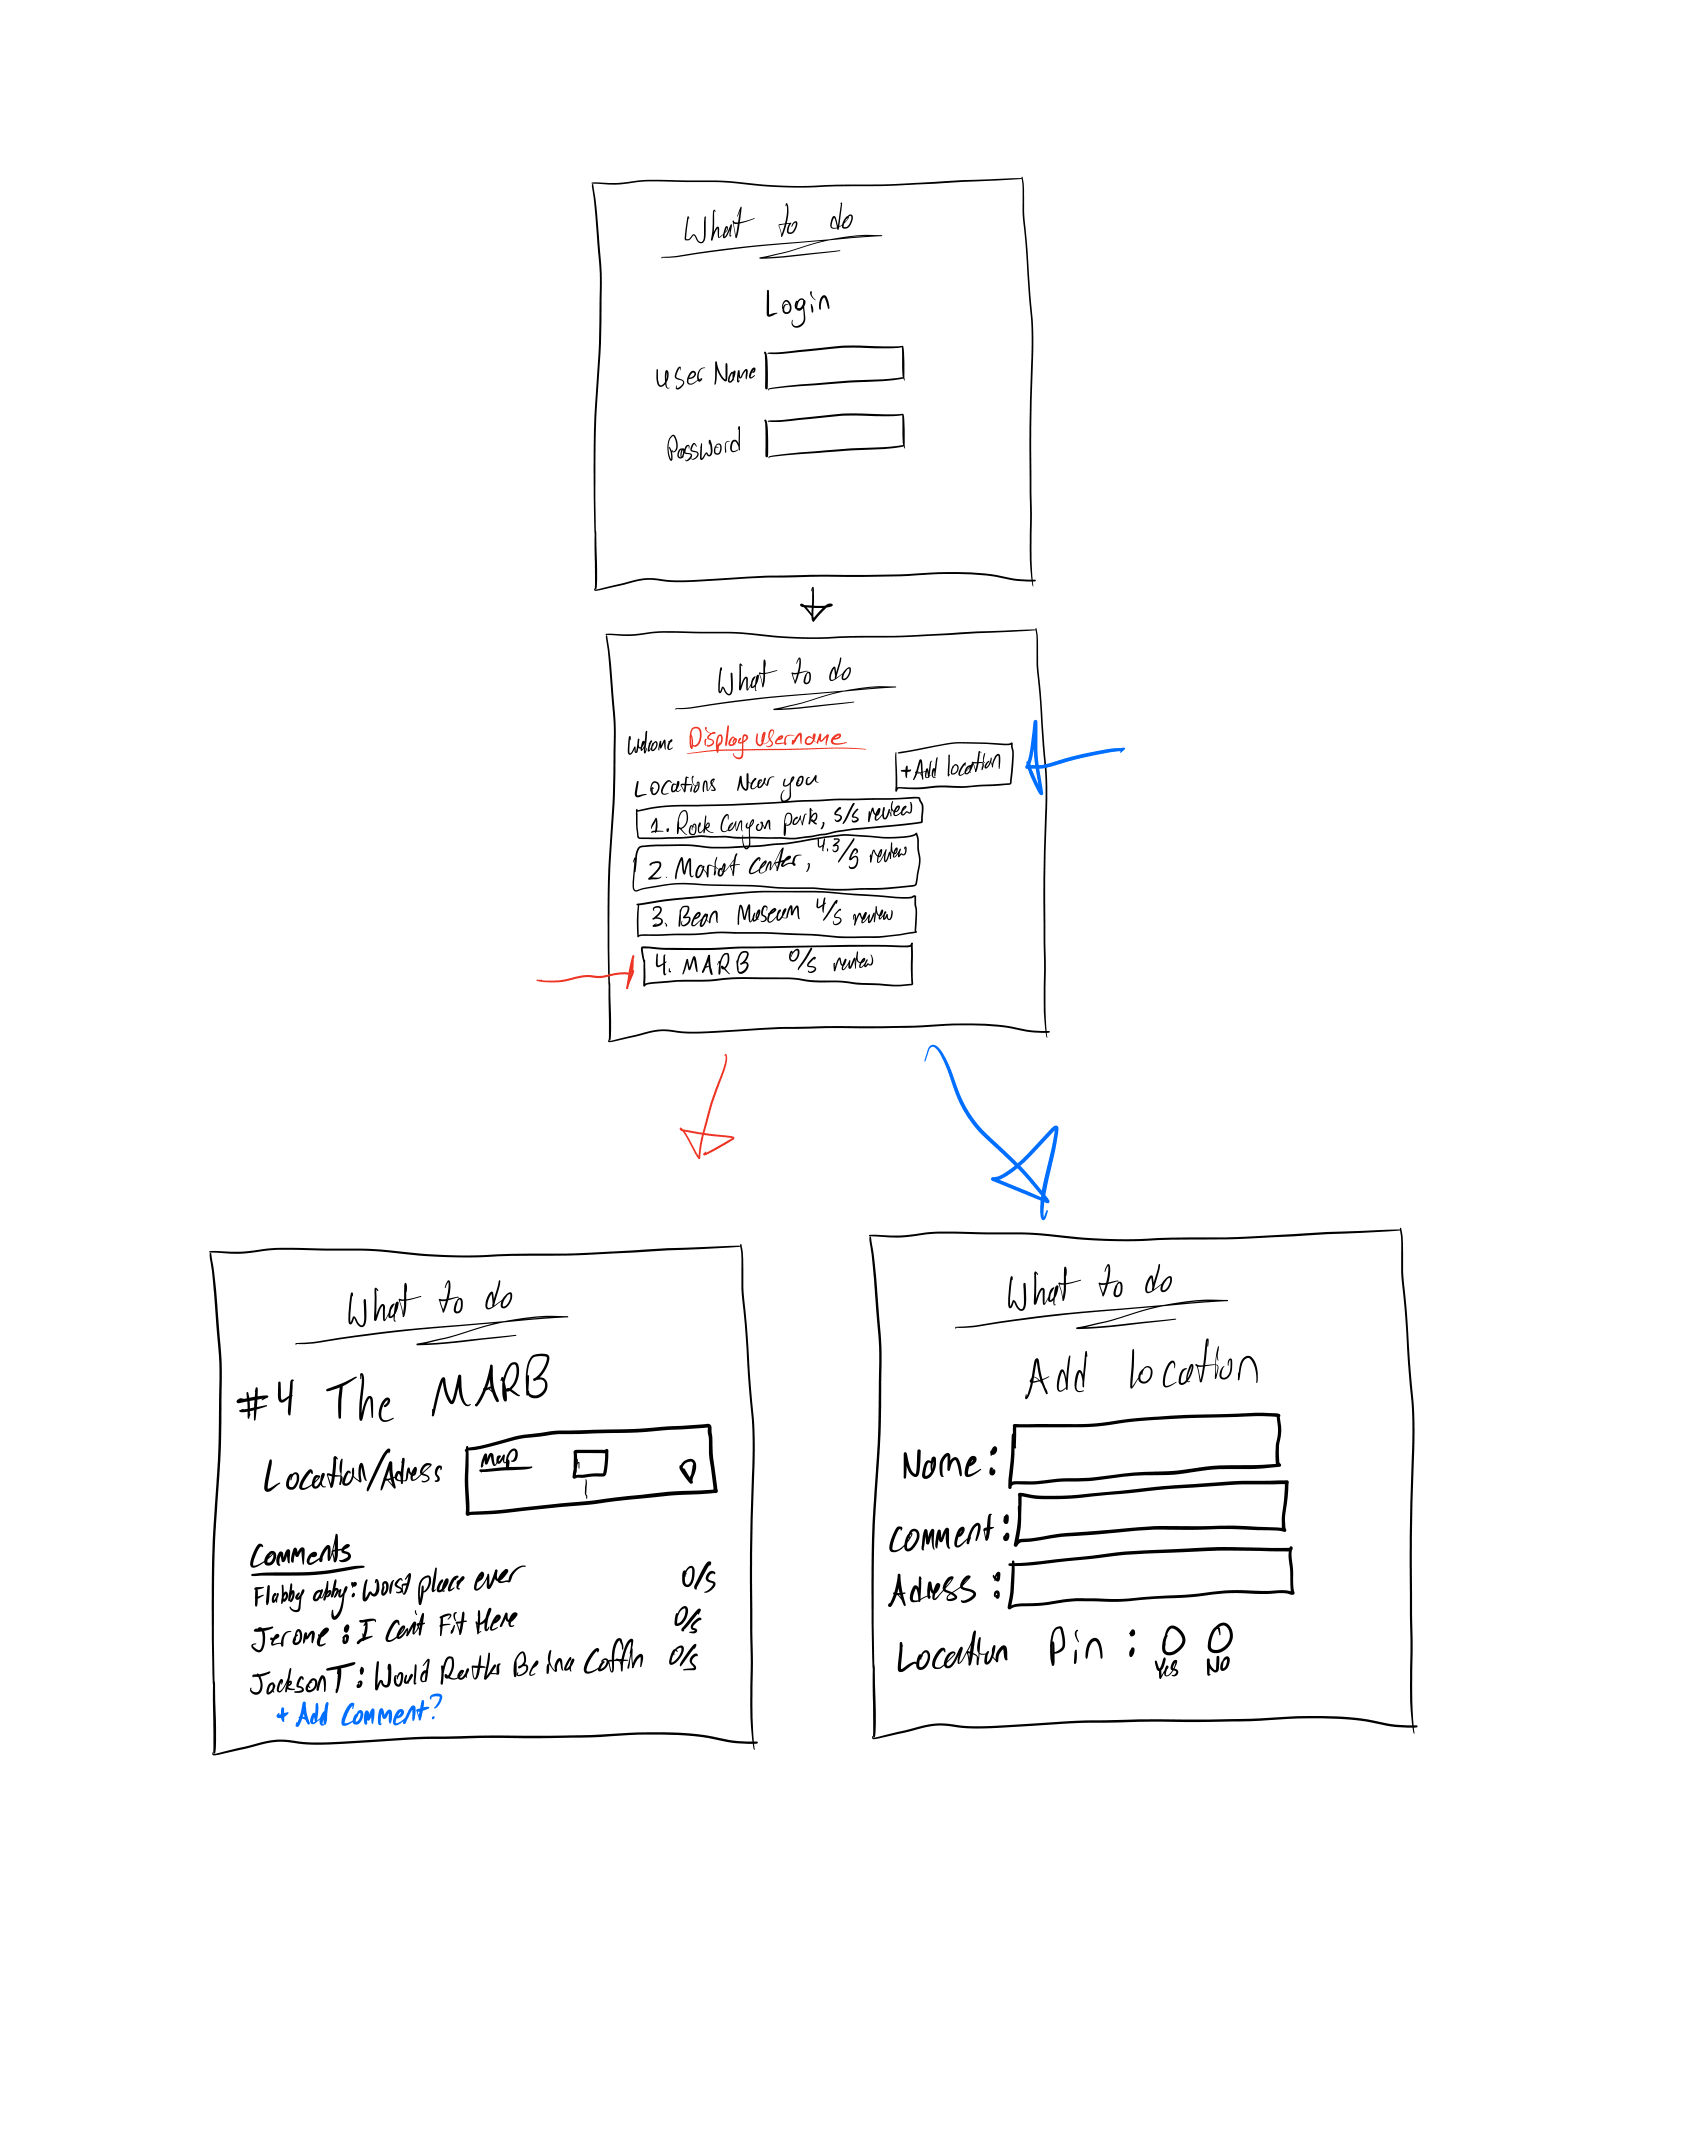 What to do
Login
User Name
Password
What to do
Welcome Display username
+Add location
Locations Near you
1. Rock Canyon park, 5/5 review
2. Market center, 4.3/5 review
3. Bean Museum 4/5 review
4. MARB 0/5 review
What to do
#4 The MARB
Location/Adress
Map
Comments
Flabby abby: Worst place ever 0/5
Jerome: I Can't Fit Here 0/5
JacksonT: Would Rather Be in a Coffin 0/5
+ Add Comment?
What to do
Add location
Name:
Comment:
Adress:
Location Pin:
Yes NO